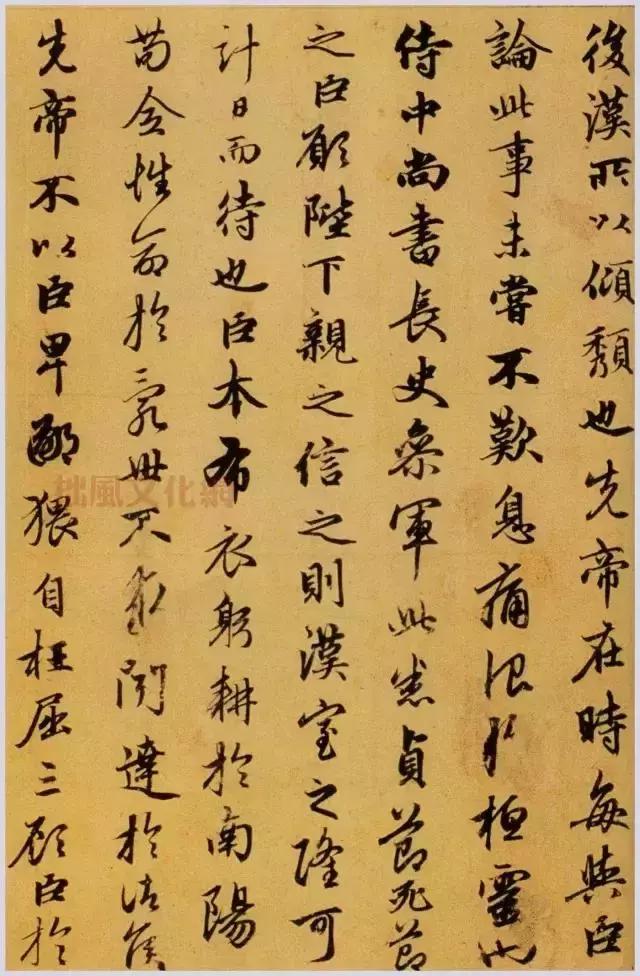 後漢所以傾頹也先帝在時每與臣
論此事未嘗不歎息痛恨於桓靈也
侍中尚書長史參軍此悉貞節死節
之臣願陛下親之信之則漢室之隆可
計日而待也臣本布衣躬耕於南陽
苟全性命於亂世不求聞達於諸侯
先帝不以臣卑鄙猥自枉屈三顧臣於
拙風文化網